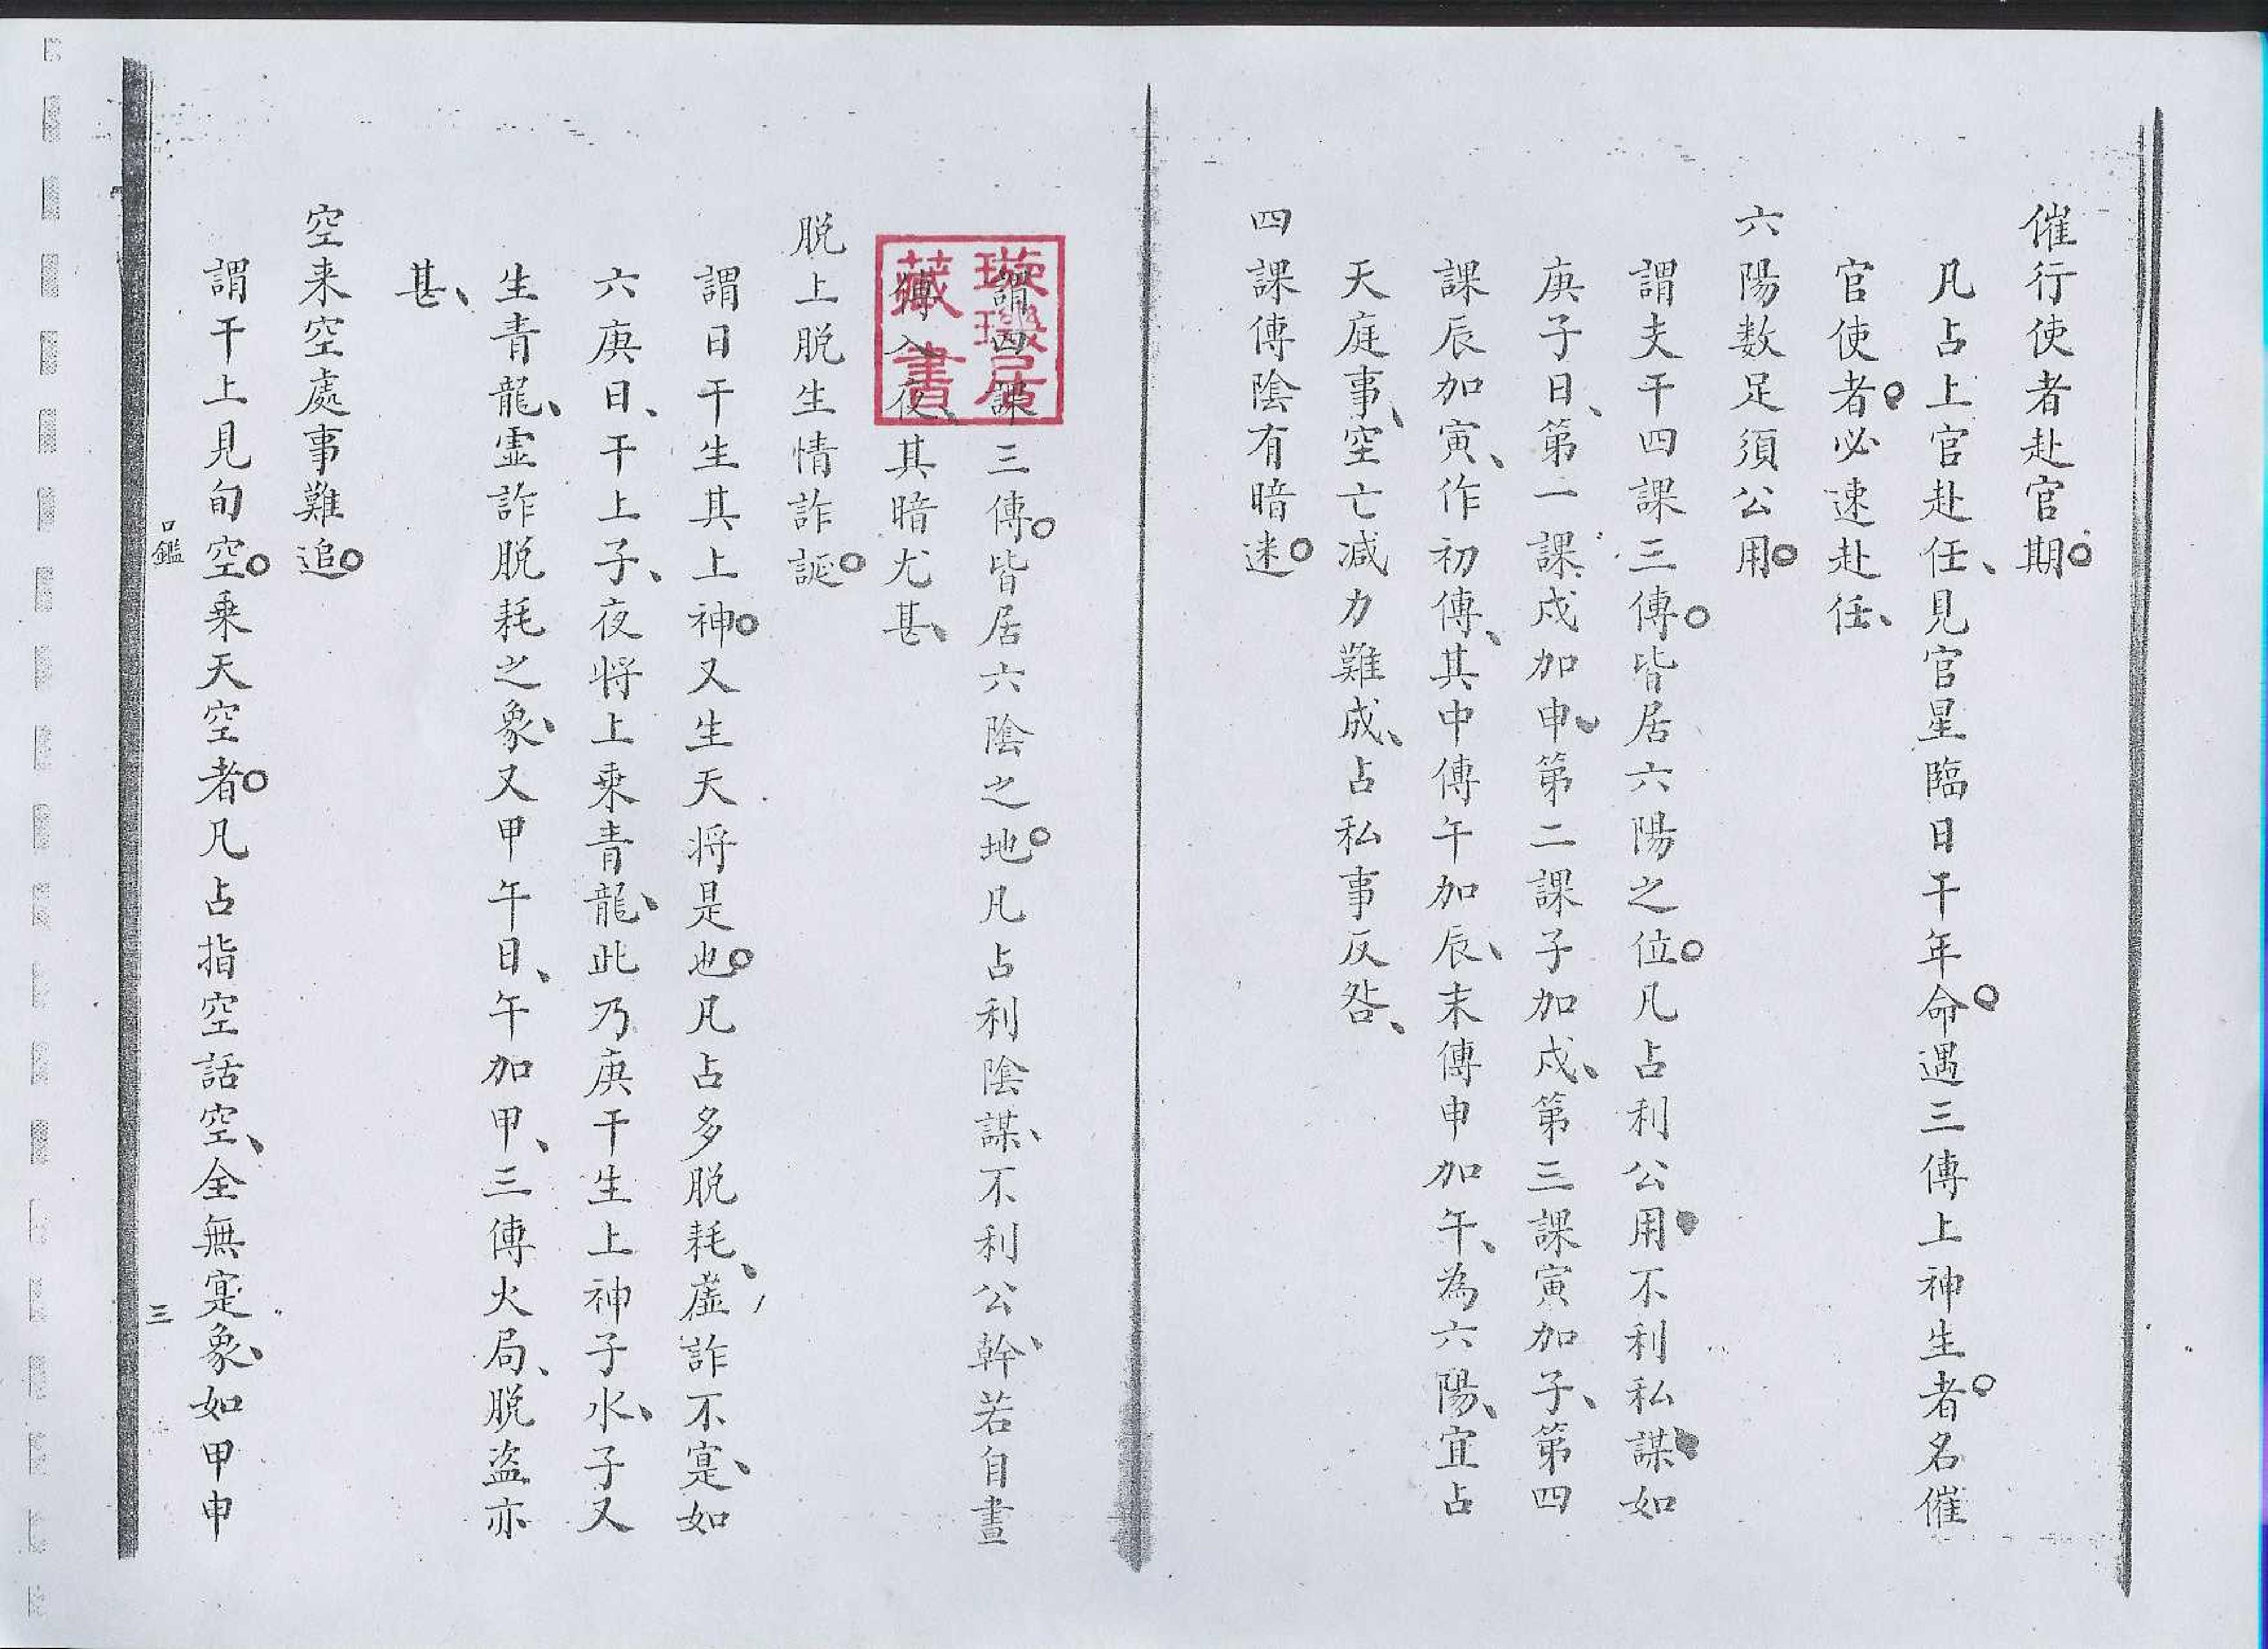 催行使者赴官期。
凡占上官赴任、見官星臨日干年命。遇三傳上神生者。名催
官使者。必速赴任、
六陽数足須公用。
謂夫干四課三傳。皆居六陽之位。凡占利公用、不利私謀、如
庚子日、第一課戌加申、第二課子加戌、第三課寅加子、第四
課辰加寅、作初傳、其中傳午加辰、末傳申加午、為六陽、宜占
天庭事、空亡减力難成、占私事反咎、
四課傳陰有暗迷。
謂四課三傳。皆居六陰之地。凡占利陰謀、不利公幹、若自晝
傳入夜、其暗尤甚、
脱上脱生情詐誕。
謂日干生其上神。又生天将是也。凡占多脱耗、虚詐不寔、如
六庚日、干上子、夜将上乘青龍、此乃庚干生上神子水、子又
生青龍、虚詐脱耗之象、又甲午日、午加甲、三傳火局、脱盗亦
甚、
空来空處事難追。
謂干上見旬空。乘天空者。凡占指空話空、全無寔象、如甲申
口鑑
三
璇璣居
藏書